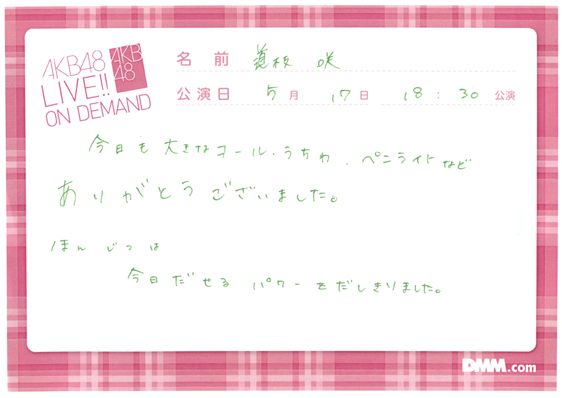 AKB48
LIVE!!
ON DEMAND
AKB
48
名前 萬枝 咲
公演日 5月 17日 18:30 公演
今日も 大きなコール、うちわ、ペンライトなど
ありがとうございました。
ほんじつは
今日だせる パワーをだしきりました。
DMM.com